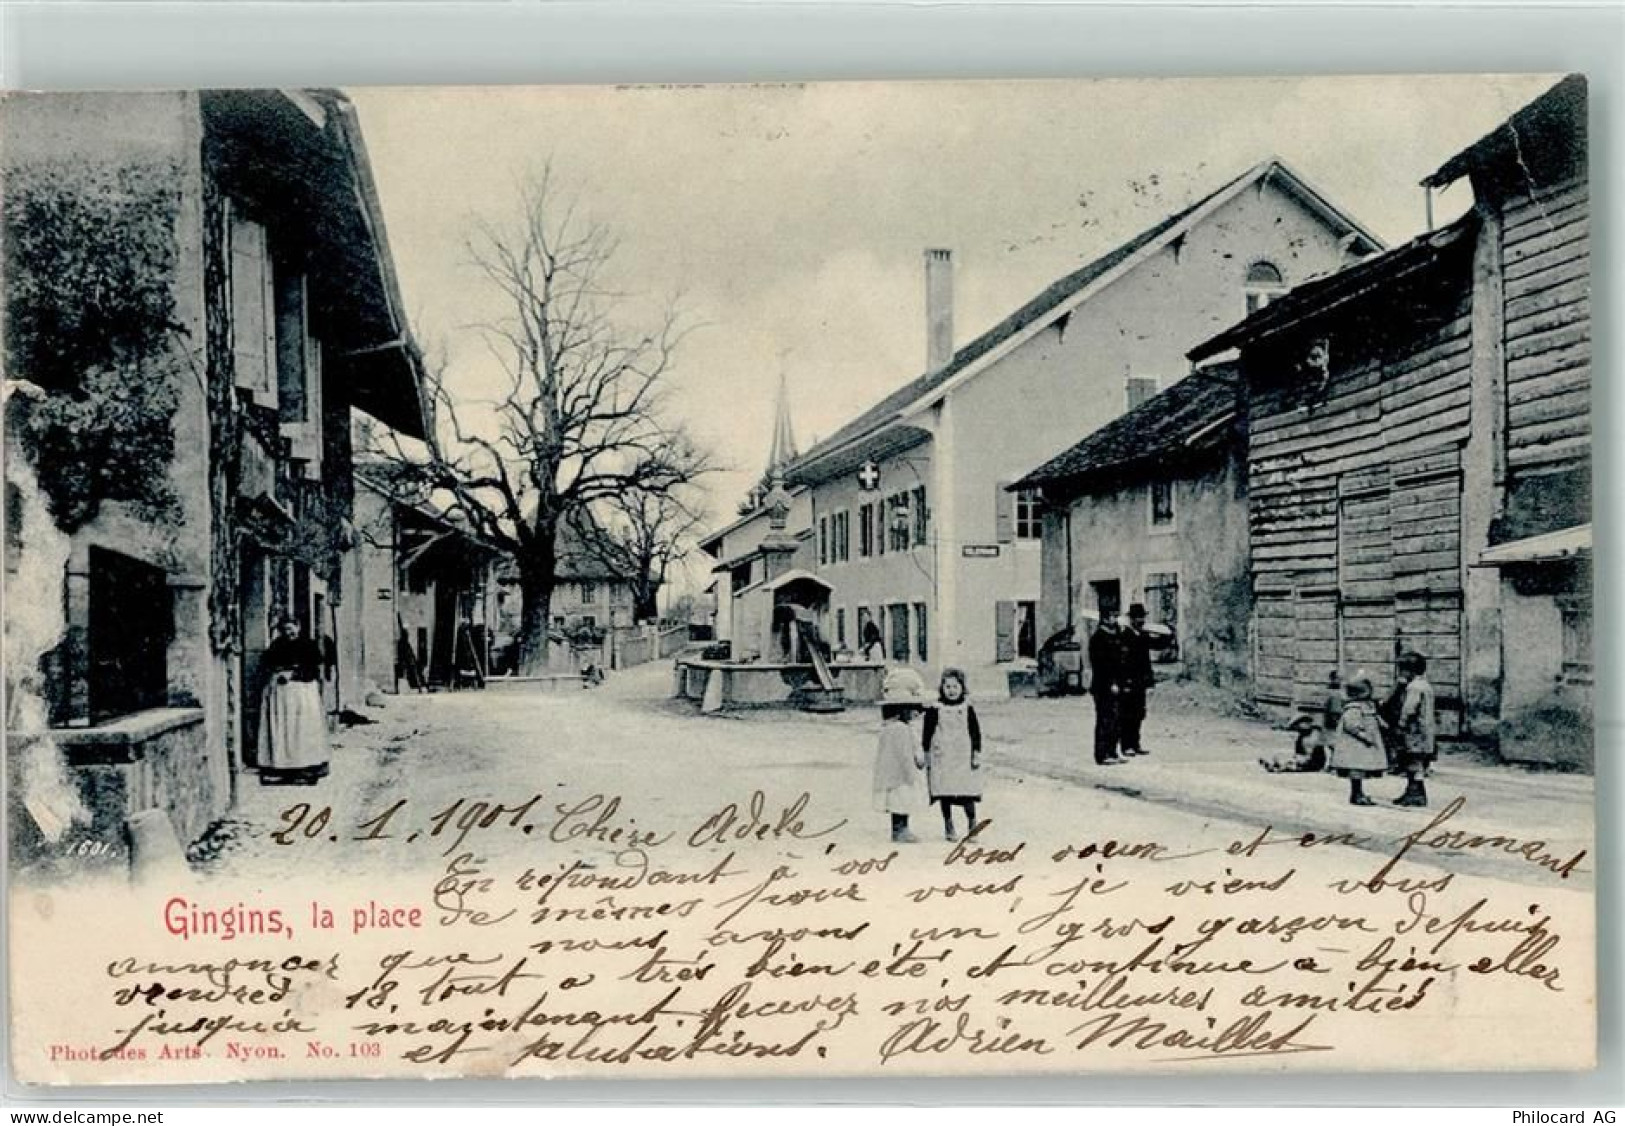 1601.
20.1.1901. Chère Adèle,
En répondant à vos bons voeux et en formant
Gingins, la place
de mêmes pour vous, je viens vous
annoncer que nous avons un gros garçon depuis
vendredi 18. tout a très bien été, et continue à bien aller
jusqu'à maintenant. Recevez nos meilleures amitiés
Phot. des Arts. Nyon. No. 103
et salutations. Adrien Maillet
www.delcampe.net
Philocard AG